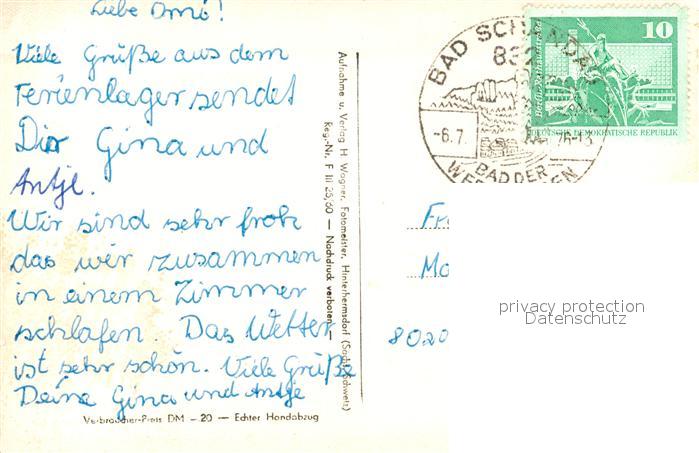 Liebe Omi!
Viele Grüße aus dem
Ferienlager sendet
Dir Gina und
Antje.
Wir sind sehr froh
das wir zusammen
in einem Zimmer
schlafen. Das Wetter
ist sehr schön. Viele Grüße
Deine Gina und Antje
Verbraucher-Preis DM -20 — Echter Handabzug
Aufnahme u. Verlag H. Wagner, Fotomeister, Hinterhermsdorf (Sächs. Schweiz)
Reg.-Nr. F III 25/60 — Nachdruck verboten
BAD SCHANDAU
832
-6.7.
76-15
BAD DER
10
DEUTSCHE DEMOKRATISCHE REPUBLIK
Fr
Mo
8020
privacy protection
Datenschutz